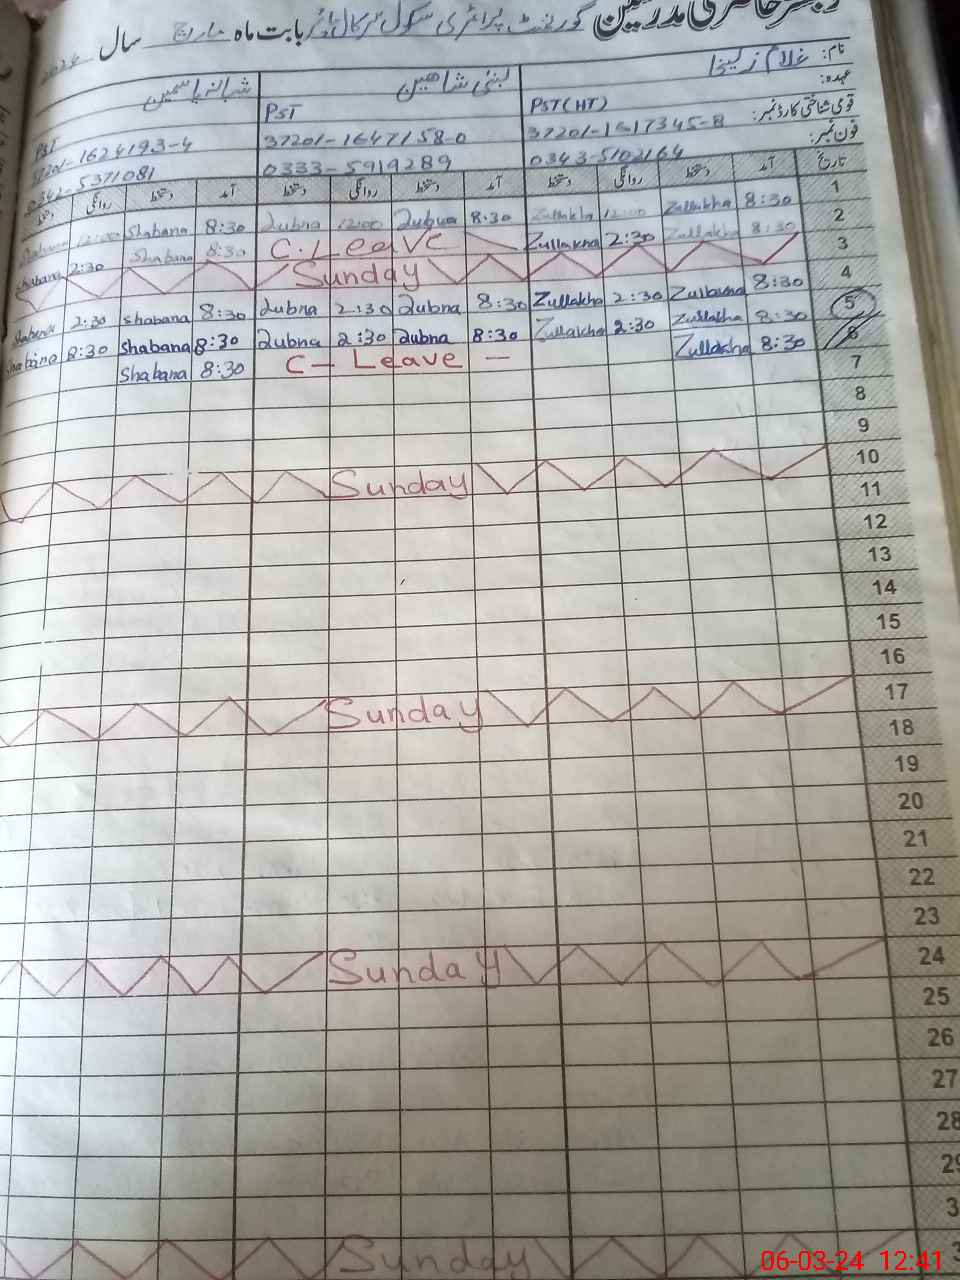 رجسٹر حاضری مدرسین گورنمنٹ پرائمری سکول بابت ماہ مارچ سال 2024
نام: غلام زلیخا لبنیٰ شاھین شبانہ یاسمین
عہدہ: PST(HT) PST PST
قومی شناختی کارڈ نمبر: 37201-1617345-8 37201-1647158-0 37201-1624193-4
فون نمبر: 0343-5102164 0333-5919289 0342-5371081
تاریخ آمد دستخط روانگی دستخط آمد دستخط روانگی دستخط آمد دستخط روانگی دستخط
1 8:30 Zullakha 12:00 Zullakha 8:30 Lubna 12:00 Lubna 8:30 Shabana 12:00 Shabana
2 8:30 Zullakha 2:30 Zullakha C. Leave 8:30 Shabana 2:30 Shabana
3 Sunday
4 8:30 Zullakha 2:30 Zullakha 8:30 Lubna 2:30 Lubna 8:30 Shabana 2:30 Shabana
5 8:30 Zullakha 2:30 Zullakha 8:30 Lubna 2:30 Lubna 8:30 Shabana 8:30 Shabana
6 8:30 Zullakha C - Leave - 8:30 Shabana
7
8
9
10 Sunday
11
12
13
14
15
16
17 Sunday
18
19
20
21
22
23
24 Sunday
25
26
27
28
29
3
3 Sunday
06-03-24 12:41